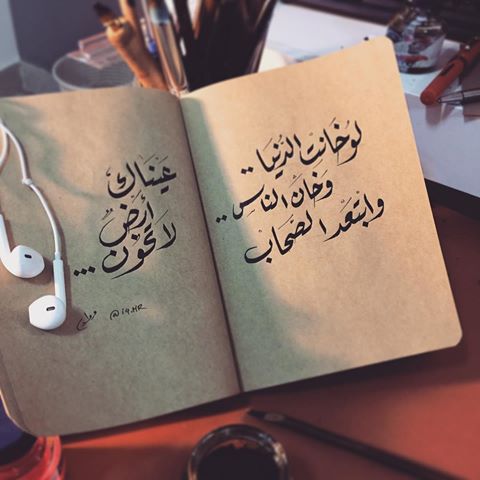 لَوْ خَانَتِ الدُّنْيَا..
وَخَانَ النَّاسُ..
وَابْتَعَدَ الصَّحَابُ
عَيْنَاكِ
أَرْضٌ
لَا تَخُوْن...
@i9.HR